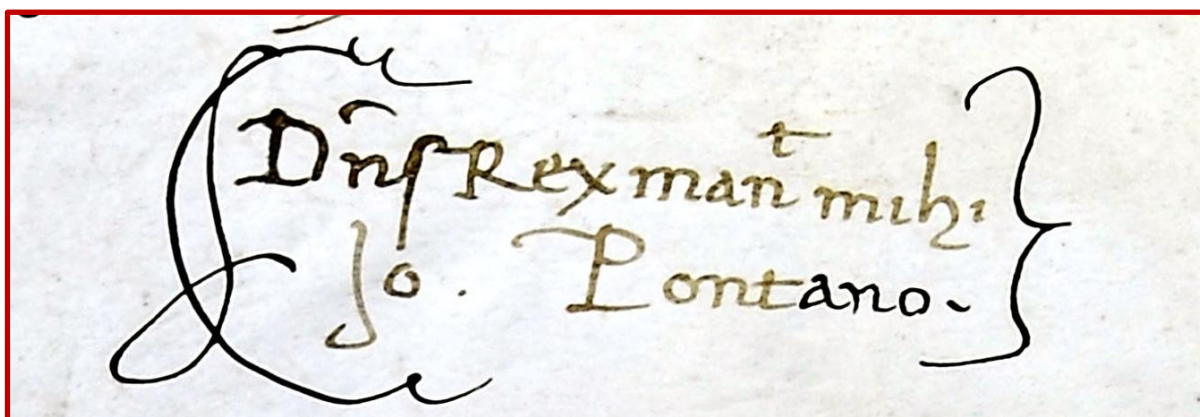 Dn̄s Rex manᵗ mihi
Jo. Pontano.